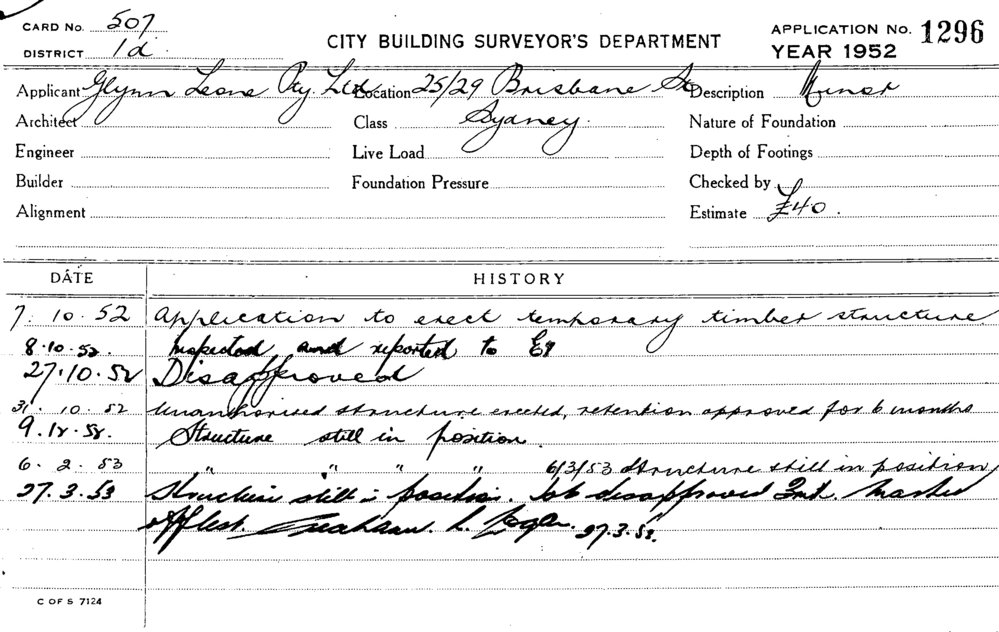 CARD No. 507
DISTRICT 1d
CITY BUILDING SURVEYOR'S DEPARTMENT
APPLICATION No. 1296
YEAR 1952
Applicant Glynn Leone Pty. Ltd. Location 25/29 Brisbane St Description Minor
Architect Class Sydney. Nature of Foundation
Engineer Live Load Depth of Footings
Builder Foundation Pressure Checked by
Alignment Estimate £40.
DATE HISTORY
7. 10. 52 Application to erect temporary timber structure
8.10.52. Inspected and reported to
27.10.52 Disapproved
31. 10. 52 Unauthorised structure erected, retention approved for 6 months
9. 12. 52. Structure still in position.
6. 2. 53 " " " " 6/3/53 Structure still in position
27.3.53 Structure still in position. Job disapproved Marked
27.3.53.
C OF S 7124